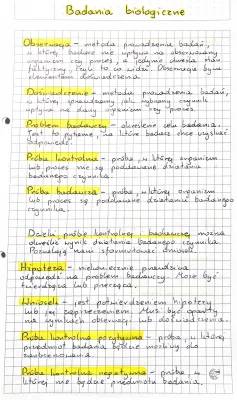 Badania biologiczne
Obserwacja - metoda prowadzenia badań,
w której badacz nie wpływa na obserwowany
organizm czy proces, a jedynie określa stan
faktyczny, czyli to co widzi. Obserwacja bywa
elementem doświadczenia.
Doświadczenie - metoda prowadzenia badań,
w której sprawdzamy czy wybrany czynnik
wpływa na dany organizm czy proces.
Problem badawczy - określenie celu badania.
Jest to pytanie, na które badacz chce uzyskać
odpowiedź.
Próba kontrolna - próba, w której organizm
lub proces nie są poddawane działaniu
badanego czynnika.
Próba badawcza - próba, w której organizm
lub proces są poddawane działaniu badanego
czynnika.
Dzięki próbie kontrolnej i badawczej można
określić wynik działania badanego czynnika.
Pozwalają nam sformułować wnioski.
Hipoteza - niekoniecznie prawdziwa
odpowiedź na problem badawczy. Może być
twierdząca lub przecząca.
Wniosek - jest potwierdzeniem hipotezy
lub jej zaprzeczeniem. Musi być oparty
na wynikach obserwacji lub doświadczenia.
Próba kontrolna pozytywna - próba, w której
przedmiot badania będzie możliwy do
zaobserwowania.
Próba kontrolna negatywna - próba w
której nie będzie przedmiotu badania.